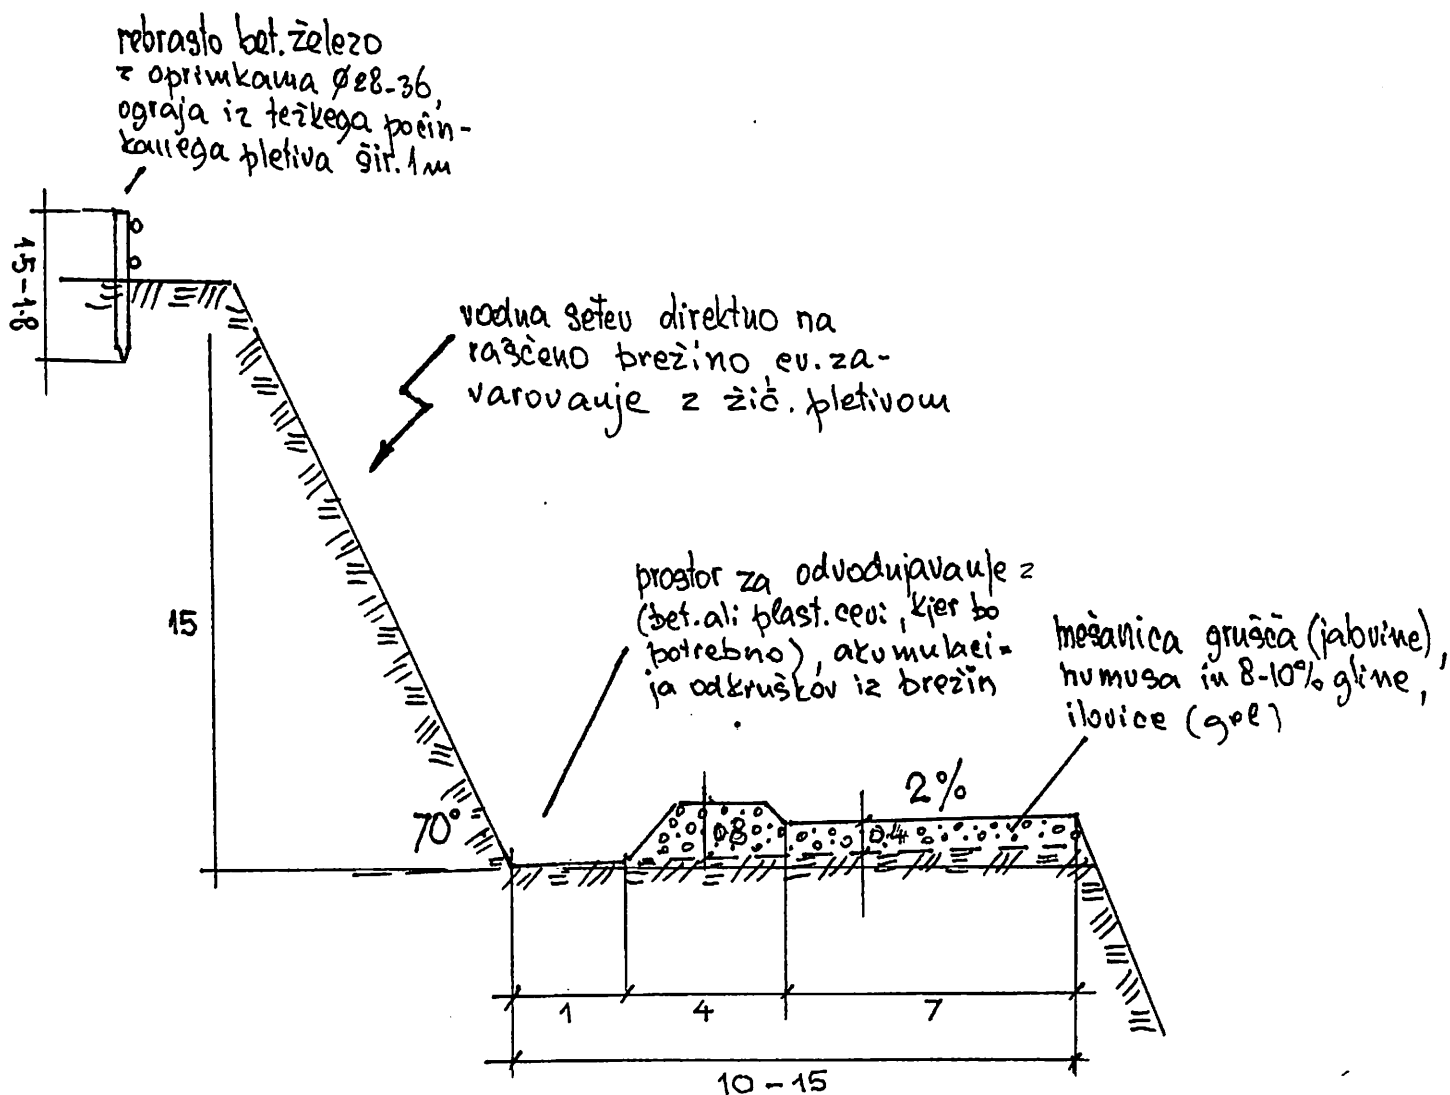 rebrasto bet. železo
z oprimkama Ø28-36,
ograja iz težkega pocin-
kanega pletiva šir. 1m
1.5-1.8
vodna setev direktno na
raščeno brežino, ev. za-
varovanje z žič. pletivom
15
70°
prostor za odvodnjavanje z
(bet. ali plast. cevi, kjer bo
potrebno), akumulaci-
ja odkruškov iz brežin
mešanica grušča (jalovine),
humusa in 8-10% gline,
ilovice (gel)
2%
0.8
0.4
1
4
7
10-15